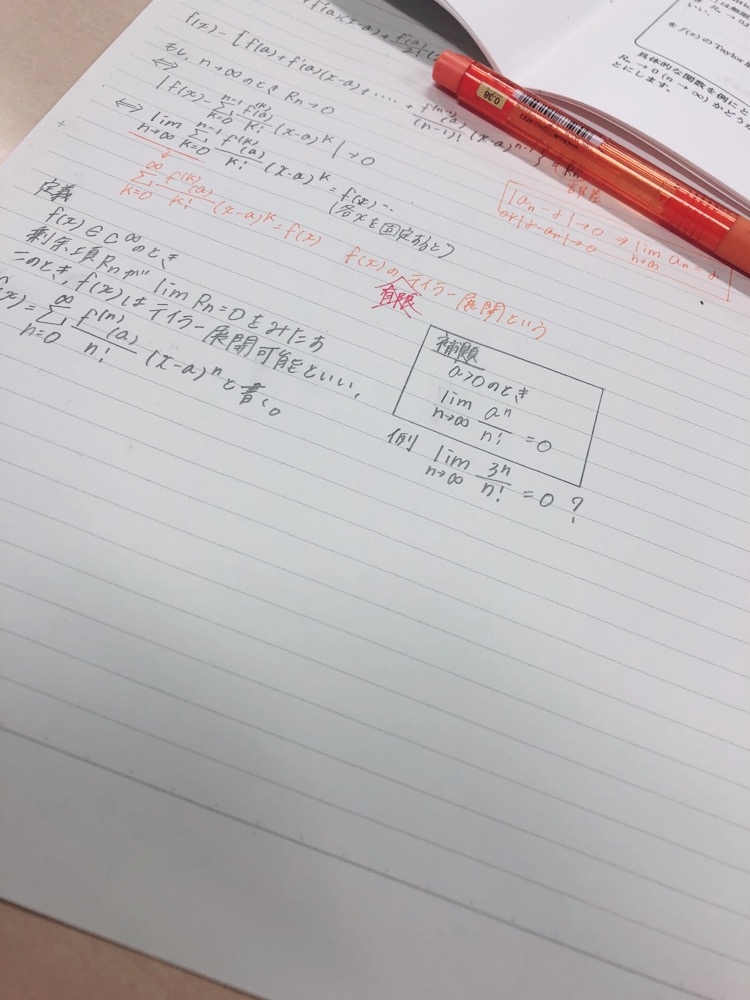 f(x) - [f(a) + f'(a)(x-a) + ····· + f^(n-1)(a)/(n-1)! (x-a)^n-1] = Rn
もし, n→∞のとき Rn→0
⇔ |f(x) - Σ_{k=0}^{n-1} f^(k)(a)/k! (x-a)^k| → 0
⇔ lim_{n→∞} Σ_{k=0}^{n-1} f^(k)(a)/k! (x-a)^k = f(x) …
(各xを固定すると)
↓
Σ_{k=0}^{∞} f^(k)(a)/k! (x-a)^k = f(x) f(x)のテイラー展開という
|an - α| → 0 ⇒ lim_{n→∞} an = α
有限
定義
f(x) ∈ C^∞ のとき
剰余項Rnが lim Rn = 0をみたす
このとき, f(x)はテイラー展開可能といい,
f(x) = Σ_{n=0}^{∞} f^(n)(a)/n! (x-a)^n と書く。
補題
a>0のとき
lim_{n→∞} a^n/n! = 0
例 lim_{n→∞} 3^n/n! = 0 ?
0.38
をf(x)のTaylor
具体的な関数を例にと
Rn → 0 (n → ∞) が
とにします.